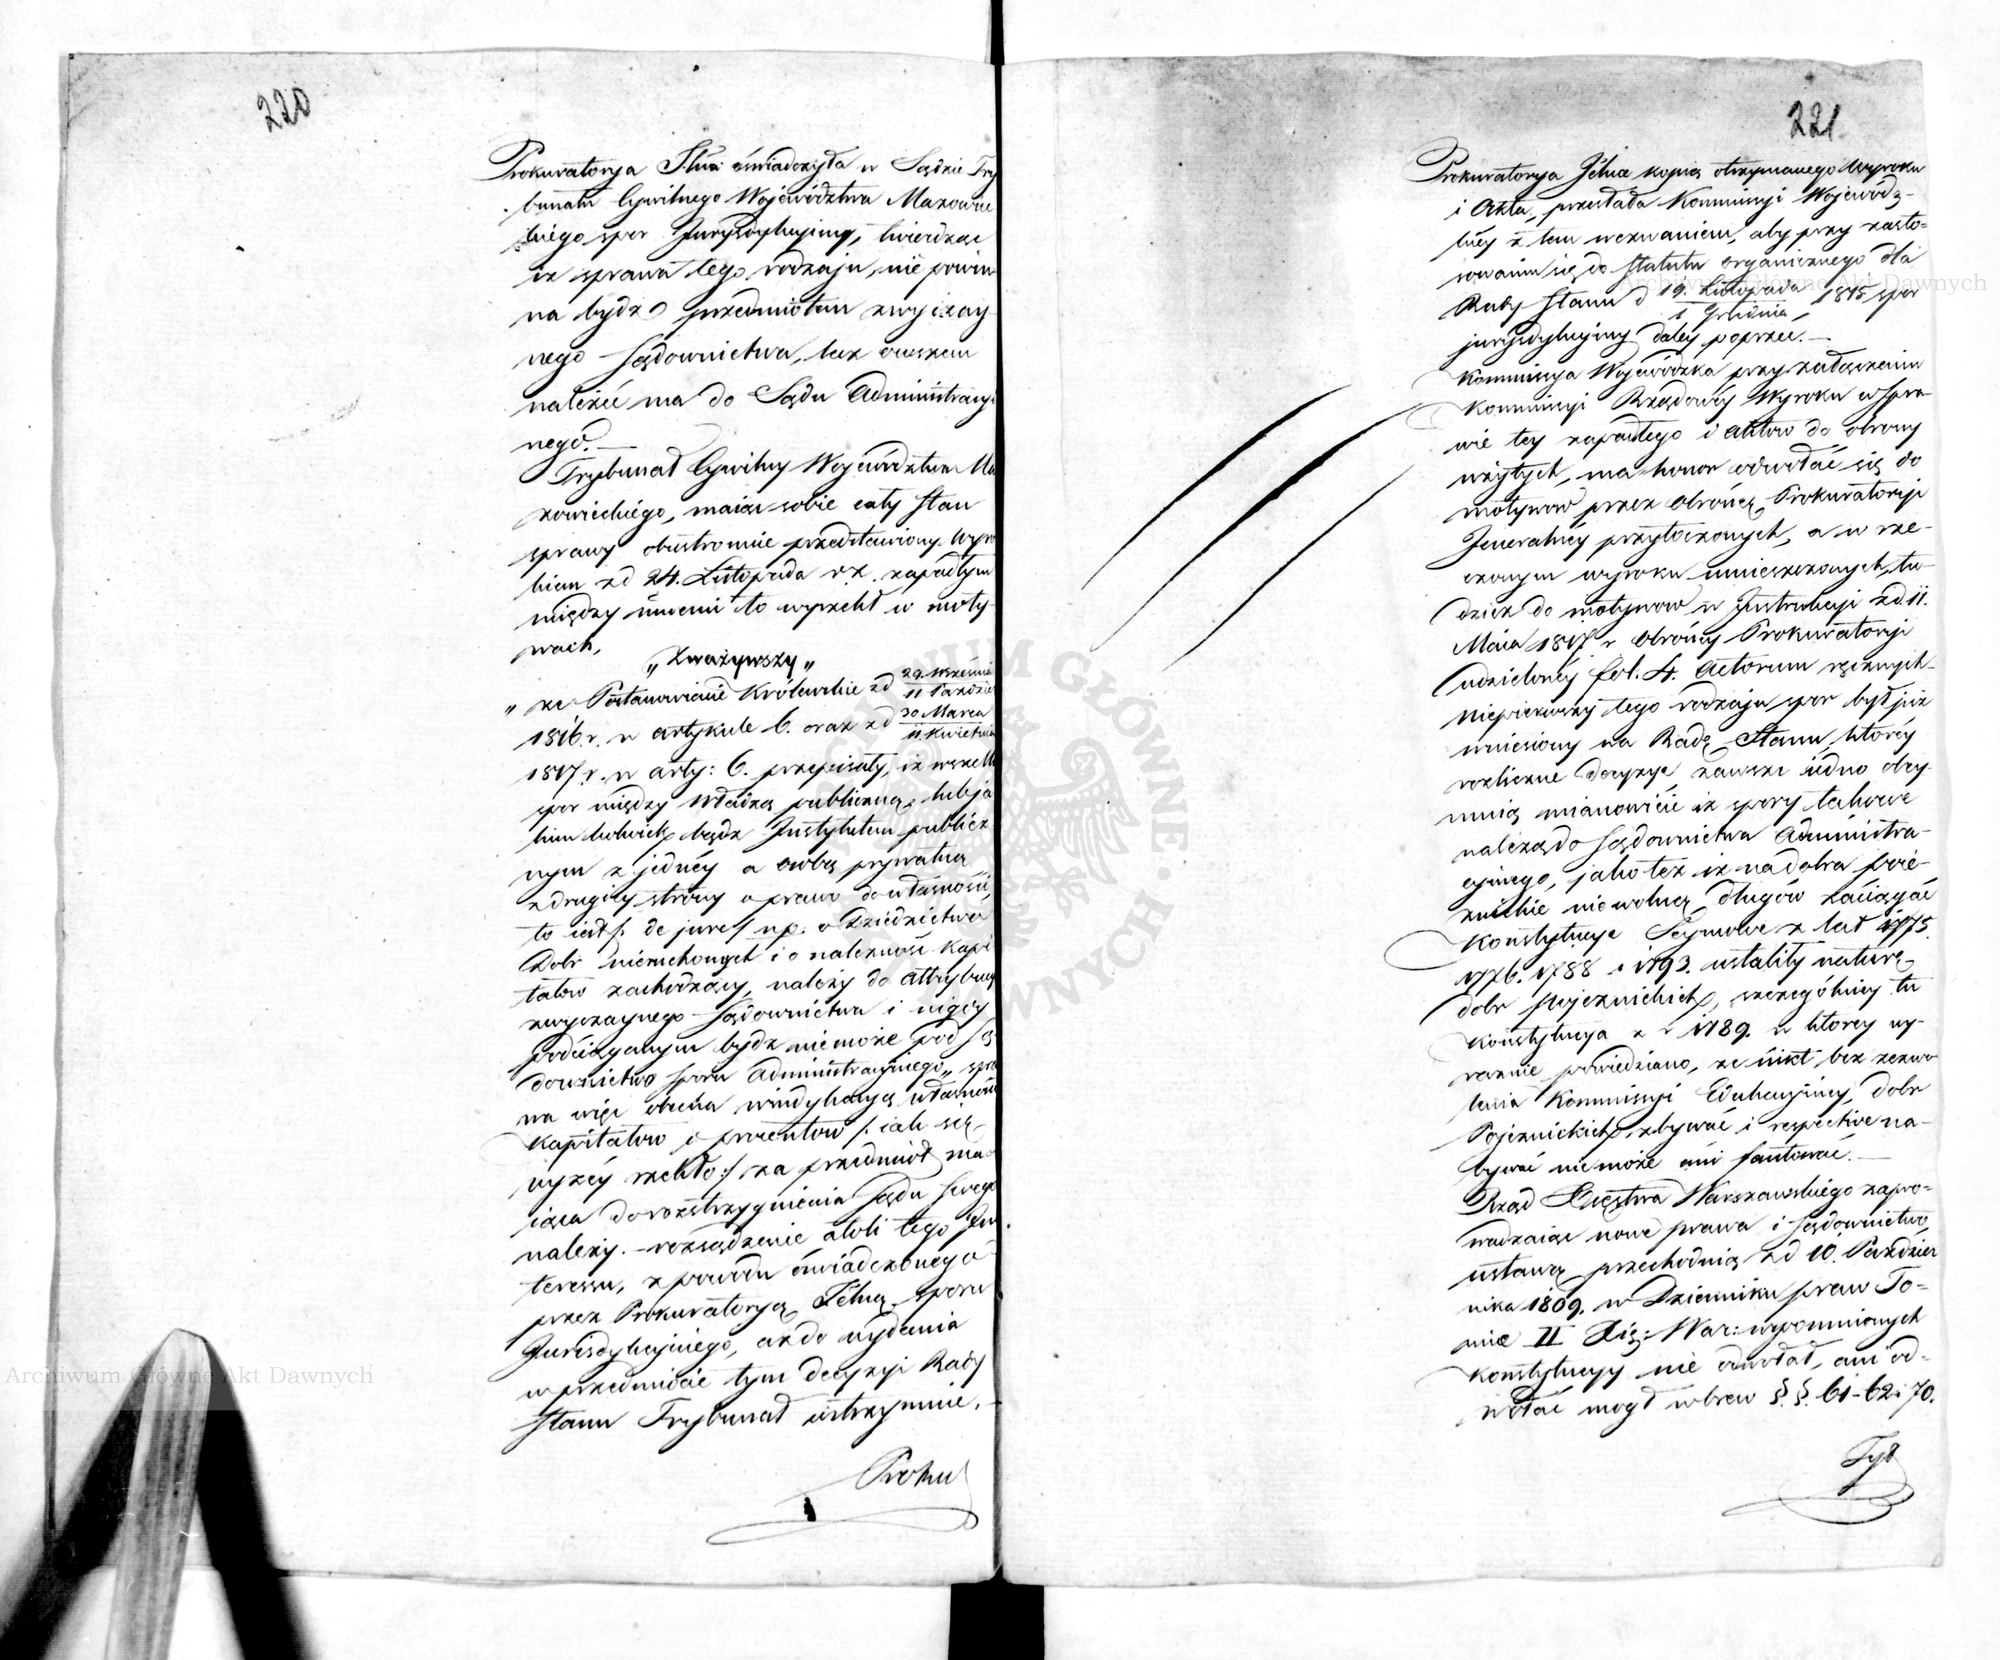 220
Prokuratorya Jlna oświadczyła w Sądzie Try
bunału Cywilnego Województwa Mazowie
ckiego spor Jurysdykcyjny, twierdząc
iż sprawa tego rodzaju, nie powin
na bydź przedmiotem zwyczay
nego Sądownictwa, lecz owszem
należeć ma do Sądu Administracyi
nego.
Trybunał Cywilny Województwa Ma
zowieckiego, maiąc sobie cały stan
sprawy obustronnie przedstawiony Wyro
kiem zd 24. Listopada r.z. zapadłym
między innemi to wyrzekł w moty
wach,
„Zważywszy„
„ że Postanowienie Królewskie zd 29. Września / 11 Paździer
1816.r. w artykule 6. oraz zd 30 Marca / 11 Kwietnia
1817.r. w arty: 6. przepisały, iż wszelki
spor między Władzą publiczną, lub ja
kim kolwiek bądz Instytutem publicz
nym z jednéy a osobą prywatną
z drugiéy strony o prawo do własności,
to iest /: de jure / np. o Dziedzictwo
Dobr nieruchomych i o należność kapi
tałów zachodzący, należy do attrybucyi
zwyczaynego Sądownictwa i nigdy
podciąganym bydź nie może pod Są
downictwo sporu Administracyjnego„ spra
wa więc obecna windykacyą własności
kapitałow i procentow /: iak się
wyżéy rzekło:/ za przedmiot ma
iąca do rozstrzygnienia Sądu swego
należy. – rozsądzenie atoli tego In
teressu, z powodu oświadczonego
przez Prokuratoryą Jlną sporu
Jurisdykcyjnego, aż do wydania
w przedmiocie tym decyzyi Rady
Stanu Trybunał wstrzymuie. –
Proku
221.
Prokuratorya Jlna kopią otrzymanego Wyroku
i Akta, przesłała Kommissyi Wojewódz-
kiéy z tem wezwaniem, aby przy zasto-
sowaniu się do Statutu organicznego dla
Rady Stanu d 19. Listopada / 1 Grudnia 1815 spor
jurysdykcyjny daléy poprzeć. –
Kommissya Wojewódzka przy załączeniu
Kommissyi Rządowéy Wyroku w spra
wie tey zapadłego i aktow do obrony
użytych, ma honor odwołać się do
motywow przez Obrońcę Prokuratoryi
Jeneralnéy przytoczonych, a w rze-
czonym wyroku umieszczonych, tu-
dzież do motywow w Instrukcyi zd. 11.
Maia 1817 r Obrońcy Prokuratoryi
udzielonéy fol. 4. Actorum ręcznych
Niepierwszy tego rodzaju spor był już
wniesiony na Radę Stanu, któréy
rozliczne decyzye zawsze iedno obey-
muią mianowicie iż spory takowe
należą do Sądownictwa Administra-
cyjnego, jako też iż na dobra poie-
zuickie niewolno długów zaciągać
Konstytucye Seymowe z lat 1775.
1776. 1788 i 1793. ustaliły naturę
dobr pojezuickich, szczególniéy tu
Konstytucya z r 1789. w ktorey wy-
raznie powiedziano, że nikt bez zezwo
lenia Kommissyi Edukacyjnéy, dobr
Pojezuickich, zbywać i respective na-
bywać nie może ani fantować. –
Rząd Księstwa Warszawskiego zapro-
wadzaiąc nowe prawa i sądownictwo,
ustawą przechodnią zd 10. Paździer
nika 1809. w Dzienniku praw To-
mie II Xię: War: wspomnionych
Konstytucyy nie odwołał, ani od-
wołać mogł wbrew §. §. 61-62 i 70.
Tyt
Archiwum Główne Akt Dawnych
Archiwum Główne Akt Dawnych
ARCHIWUM GŁÓWNE · AKT DAWNYCH ·